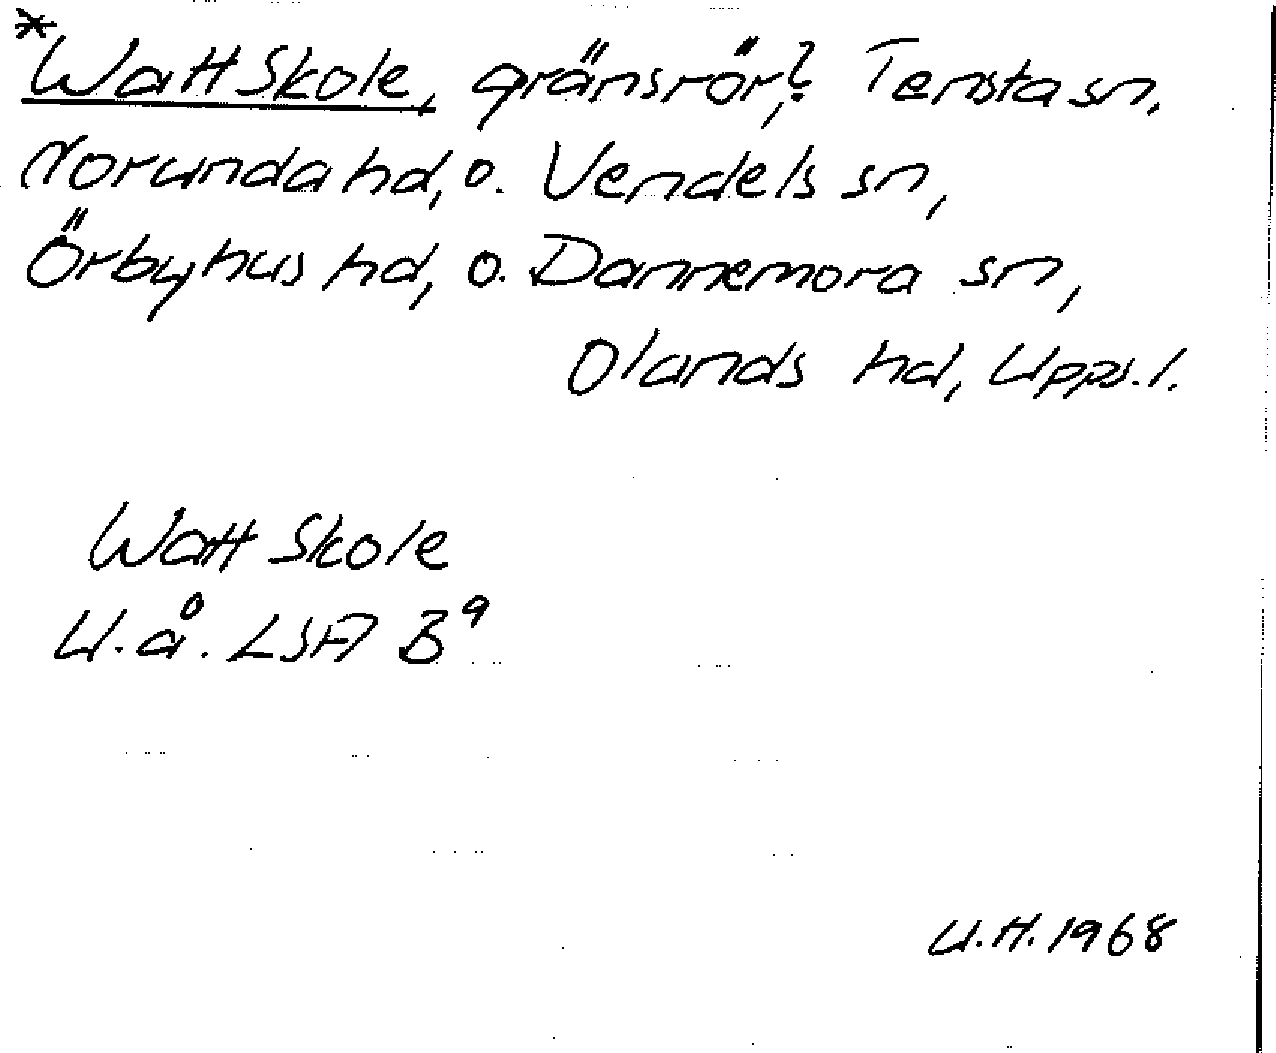 *Watt Skole, gränsrör,? Tensta sn,
Norunda hd, o. Vendels sn,
Örbyhus hd, o. Dannemora sn,
Olands hd, Upps. l.
Watt Skole
U.å. LSA B⁹
U.H. 1968